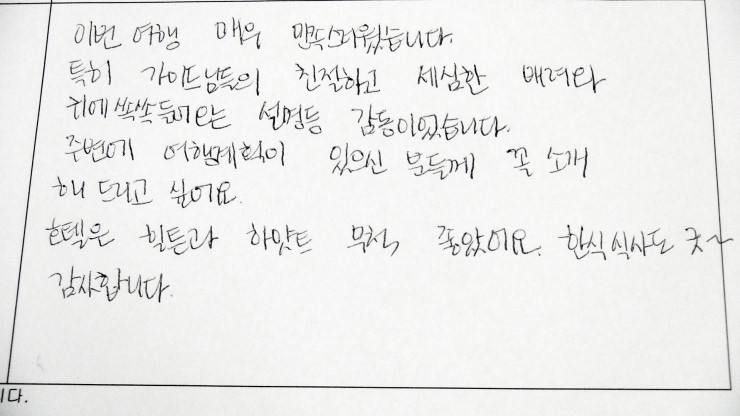 이번 여행 매우 만족스러웠습니다.
특히 가이드님들의 친절하고 세심한 배려와
귀에 쏙쏙 들어오는 설명등 감동이었습니다.
주변에 여행계획이 있으신 분들께 꼭 소개
해 드리고 싶어요.
호텔은 힐튼과 하얏트 무척 좋았어요. 한식 식사도 굿~
감사합니다.
니다.